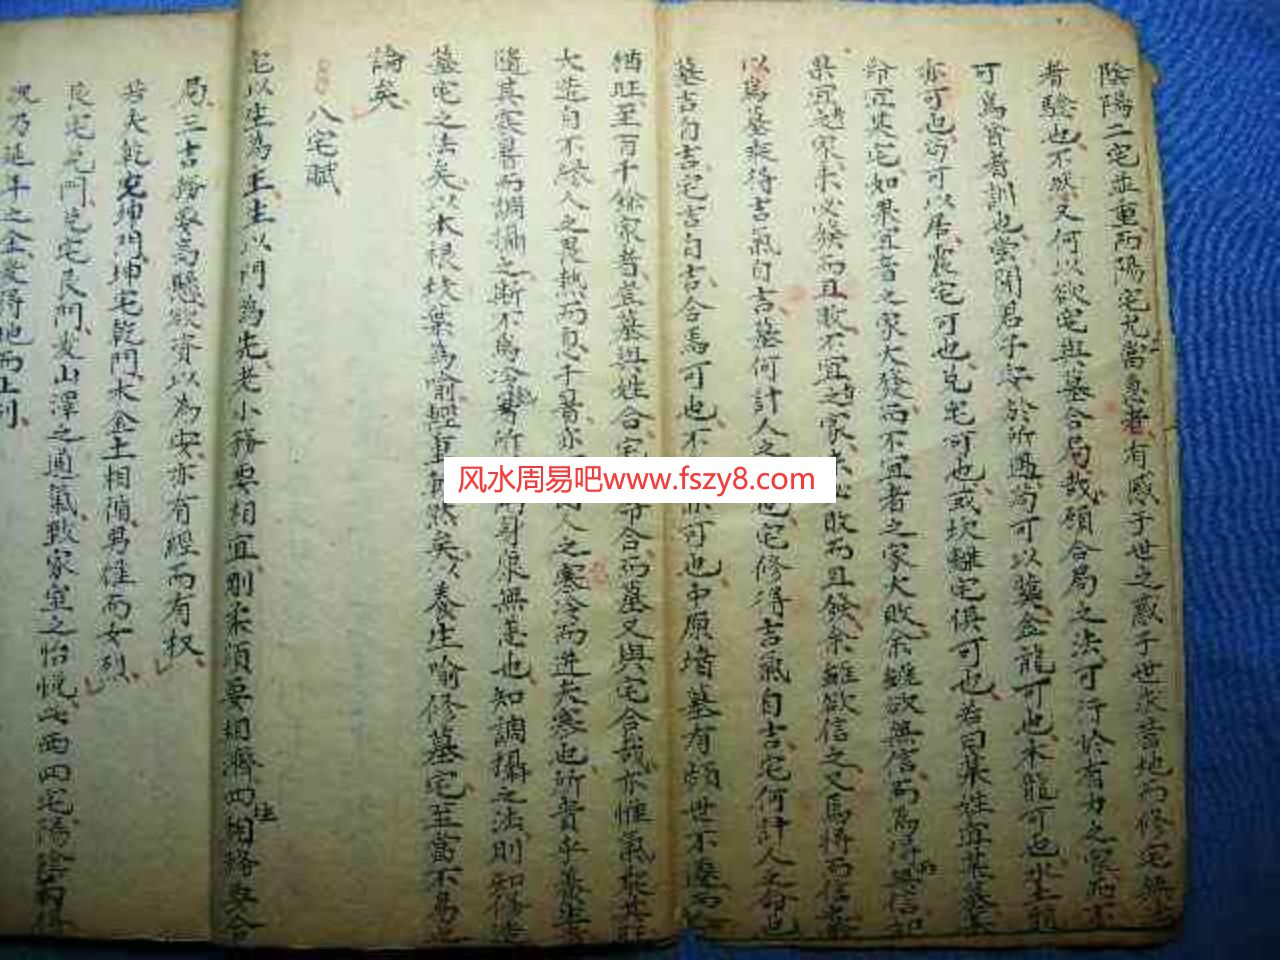 陰陽二宅並重而陽宅尤當急者有感于世之惑于世求吉地而修宅無
者驗也不然又何以欲宅與墓合局哉顧合局之法可行於有力之家而不
可為貧者訓也嘗聞君子安於所遇苟可以葬金龍可也木龍可也水土
亦可也苟可以居震宅可也兌宅可也或坎離宅俱可也若曰某姓宜某墓某
給宜某宅如果宜者之家大發而不宜者之家大敗余雖欲無信而為得無信
果宜之家未必發而且敗不宜之家未必敗而且發余雖欲信之又焉得而信
以為墓乘得吉氣自吉墓何計人之 也宅修得吉氣自吉宅何計人之命也
墓吉自吉宅吉自吉合焉可也不 亦可也中原墳墓有頗世不遷而
猶旺至百千餘家者豈墓與姓合宅 命合而墓又與宅合哉亦惟氣 其旺
大造自不緣人之畏熱而息于暑亦 人之寒冷而進夫寒也所貴乎養生者
隨其寒暑而調攝之斯不為冷暑所 而身康無恙也知調攝之法則知修造
墓宅之法矣以木根枝葉為喻輕重 然矣以養生喻修墓宅至當不易之
論矣
八宅賦
宅以坐為主主以門為先老小務要相宜剛柔須要相濟四相務要合
局三吉務要高懸欲資以為安亦有經而有权
若夫乾宅坤門坤宅乾門木金土相隨男 而女列
艮宅兌門兌宅艮門 山澤之通氣致家室之怡悅 西四宅陽陰兩
况乃延年之金 得地而上列
风水周易吧www.fszy8.com